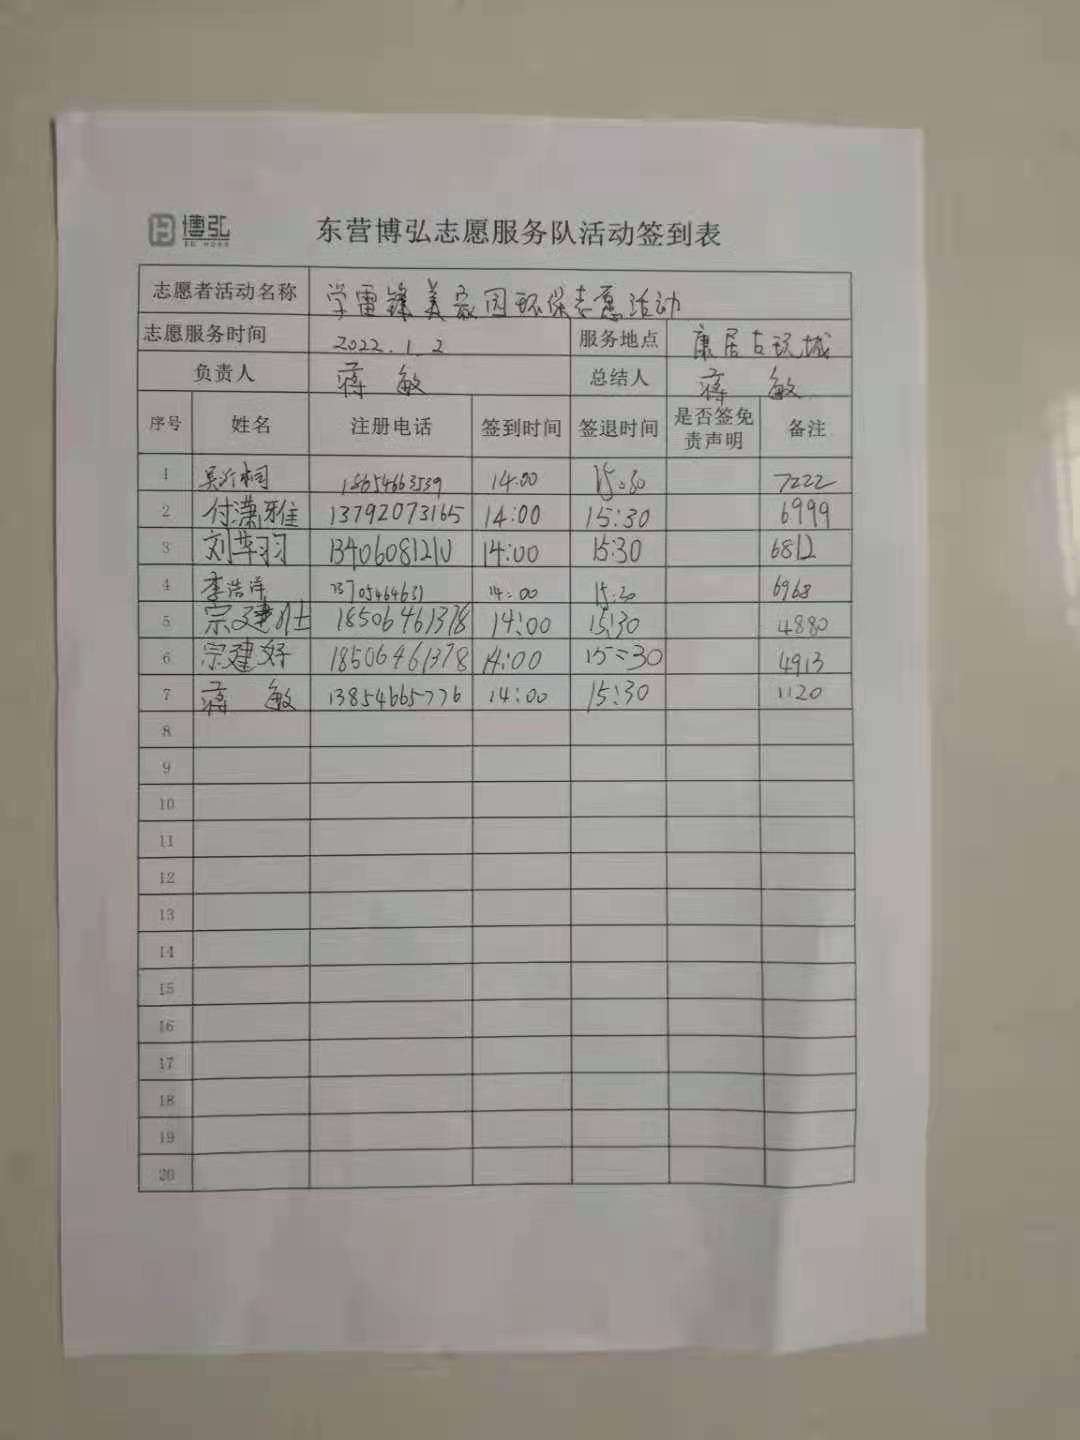 博弘
BO HONG
东营博弘志愿服务队活动签到表
志愿者活动名称 学雷锋美家园环保志愿活动
志愿服务时间 2022.1.2 服务地点 康居古玩城
负责人 蒋敏 总结人 蒋敏
序号 姓名 注册电话 签到时间 签退时间 是否签免责声明 备注
1 18654663539 14:00 15:30 7222
2 付潇雅 13792073165 14:00 15:30 6999
3 刘苹羽 13406081210 14:00 15:30 6812
4 李浩洋 13705464631 14:00 15:30 6968
5 宗建仕 18506461378 14:00 15:30 4880
6 宗建好 18506461378 14:00 15:30 4913
7 蒋敏 13854665776 14:00 15:30 1120
8
9
10
11
12
13
14
15
16
17
18
19
20